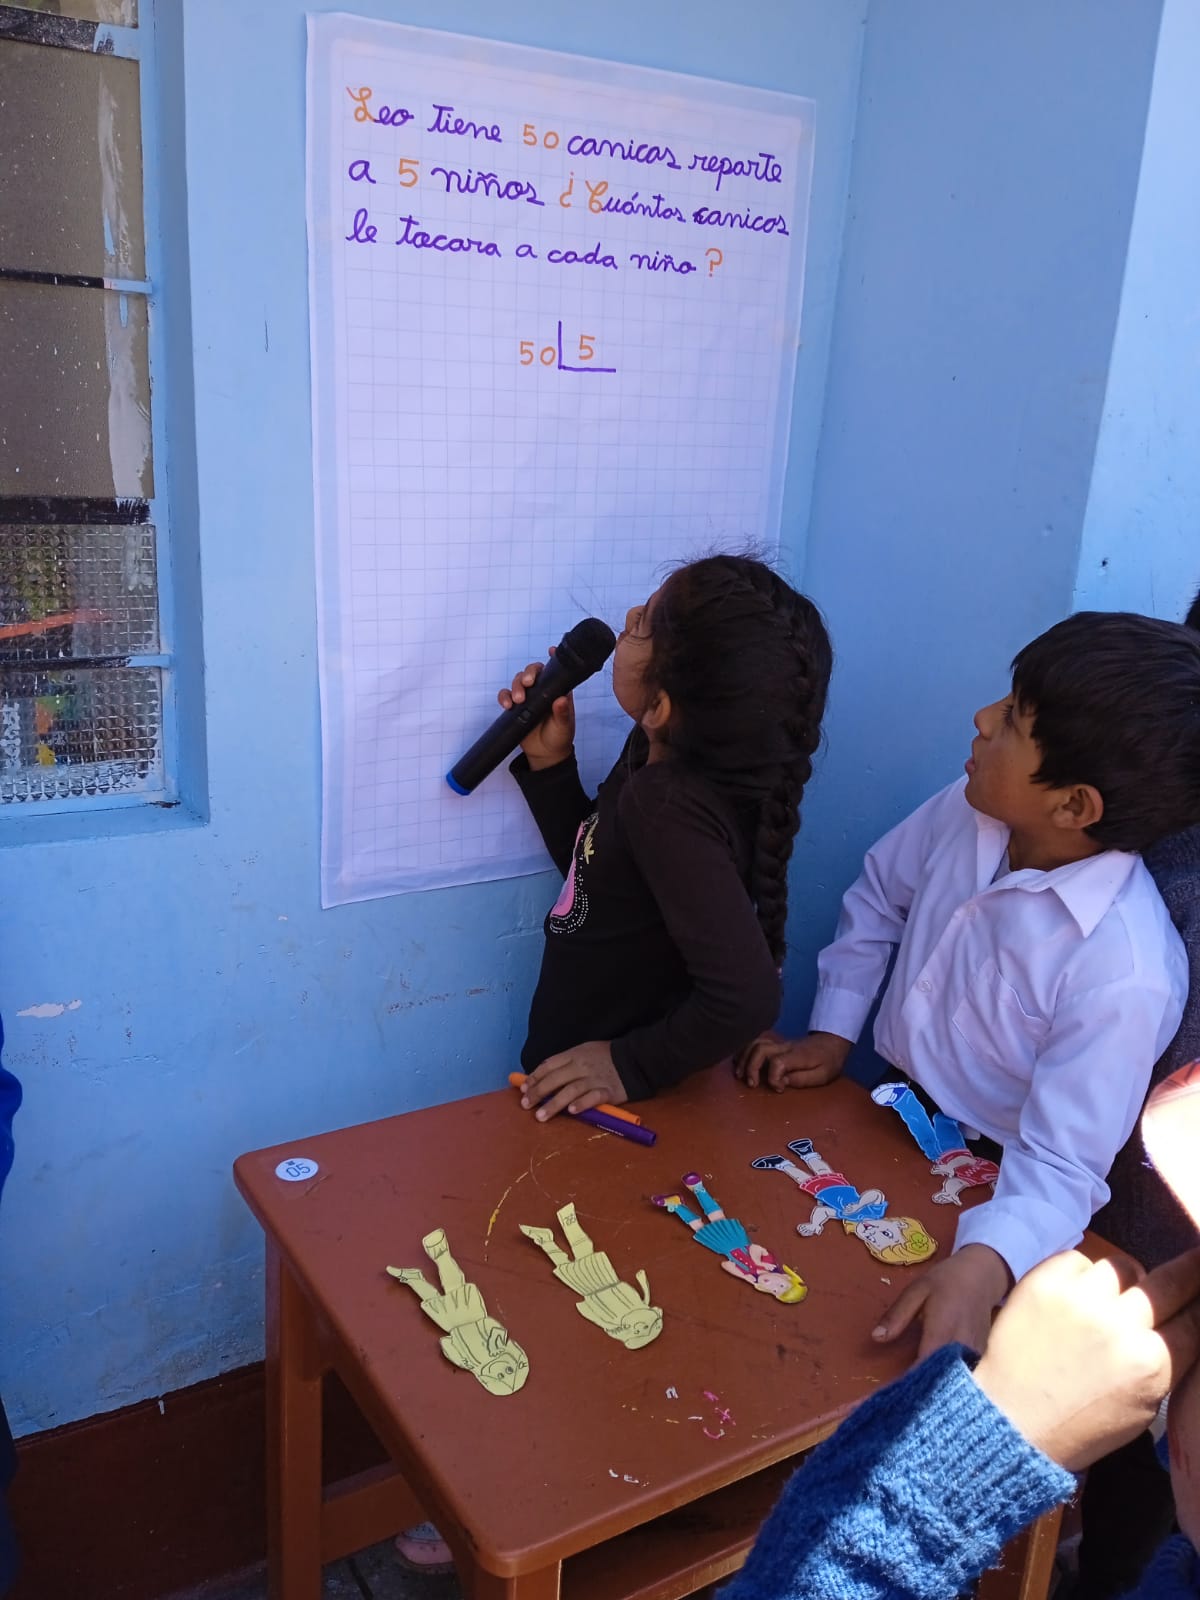 Leo tiene 50 canicas reparte
a 5 niños ¿Cuántas canicas
le tocara a cada niño?
50 5
05